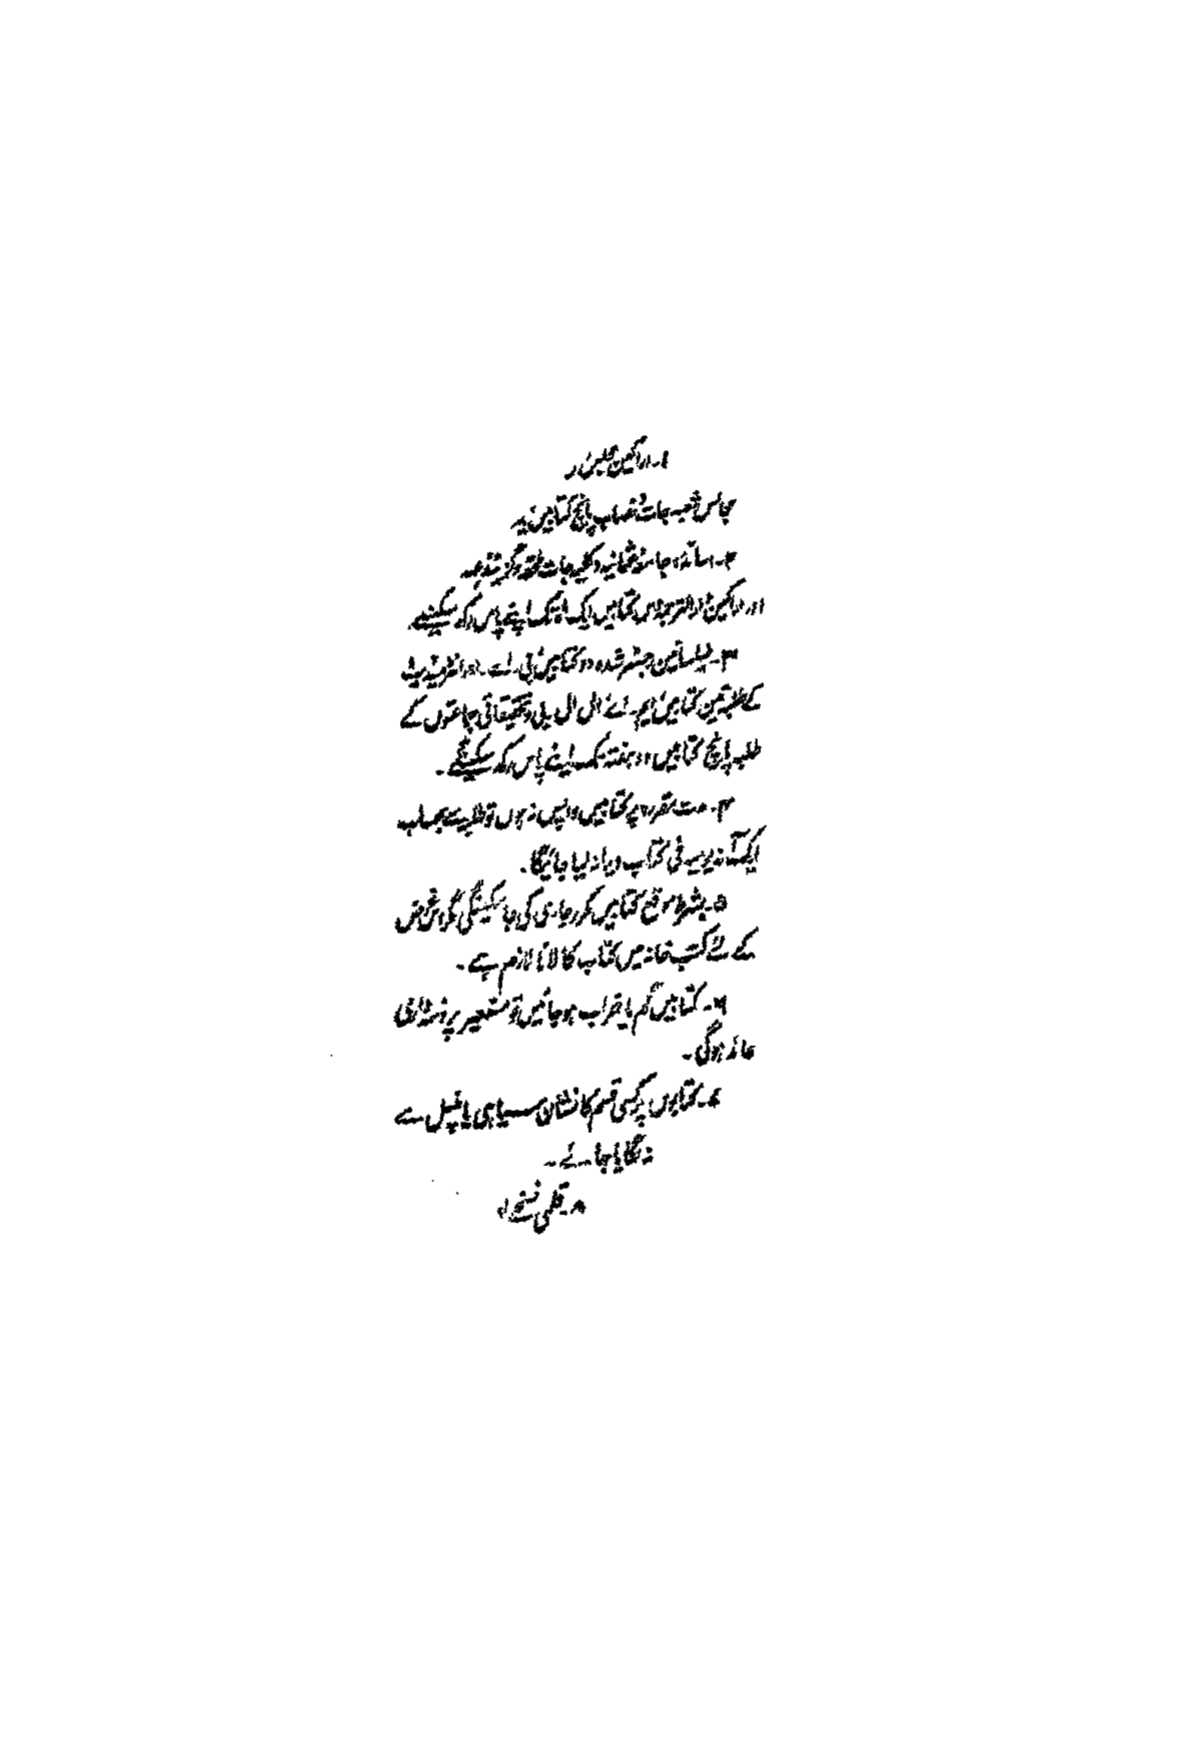 ۱۔ اراکین مجلس
مجالس شعبہ جات نصاب پانچ کتابیں
۲۔ اساتذہ جامعہ عثمانیہ و کلیہ جات ملحقہ و گزیٹیڈ عہدہ
اور اراکین دارالترجمہ دس کتابیں ایک ماہ تک اپنے پاس رکھ سکینگے۔
۳۔ طیلسانین رجسٹر شدہ دو کتابیں بی۔ اے۔ اور انٹرمیڈیٹ
کے طلبہ تین کتابیں ایم۔ اے ال ال بی و تحقیقاتی جماعتوں کے
طلبہ پانچ کتابیں دو ہفتہ تک اپنے پاس رکھ سکینگے۔
۴۔ مدت مقررہ پر کتابیں واپس نہ ہوں تو طلبہ سے بحساب
ایک آنہ یومیہ فی کتاب جرمانہ لیا جائیگا۔
۵۔ بشرط موقع کتابیں مکرر جاری کی جاسکینگی مگر اس غرض
کے لئے کتب خانہ میں کتاب کا لانا لازم ہے۔
۶۔ کتابیں گم یا خراب ہوجائیں تو مستعیر پر ذمہ داری
عائد ہوگی۔
۷۔ کتابوں پر کسی قسم کا نشان سیاہی یا پنسل سے
نہ لگایا جائے۔
۸۔ قلمی نسخے